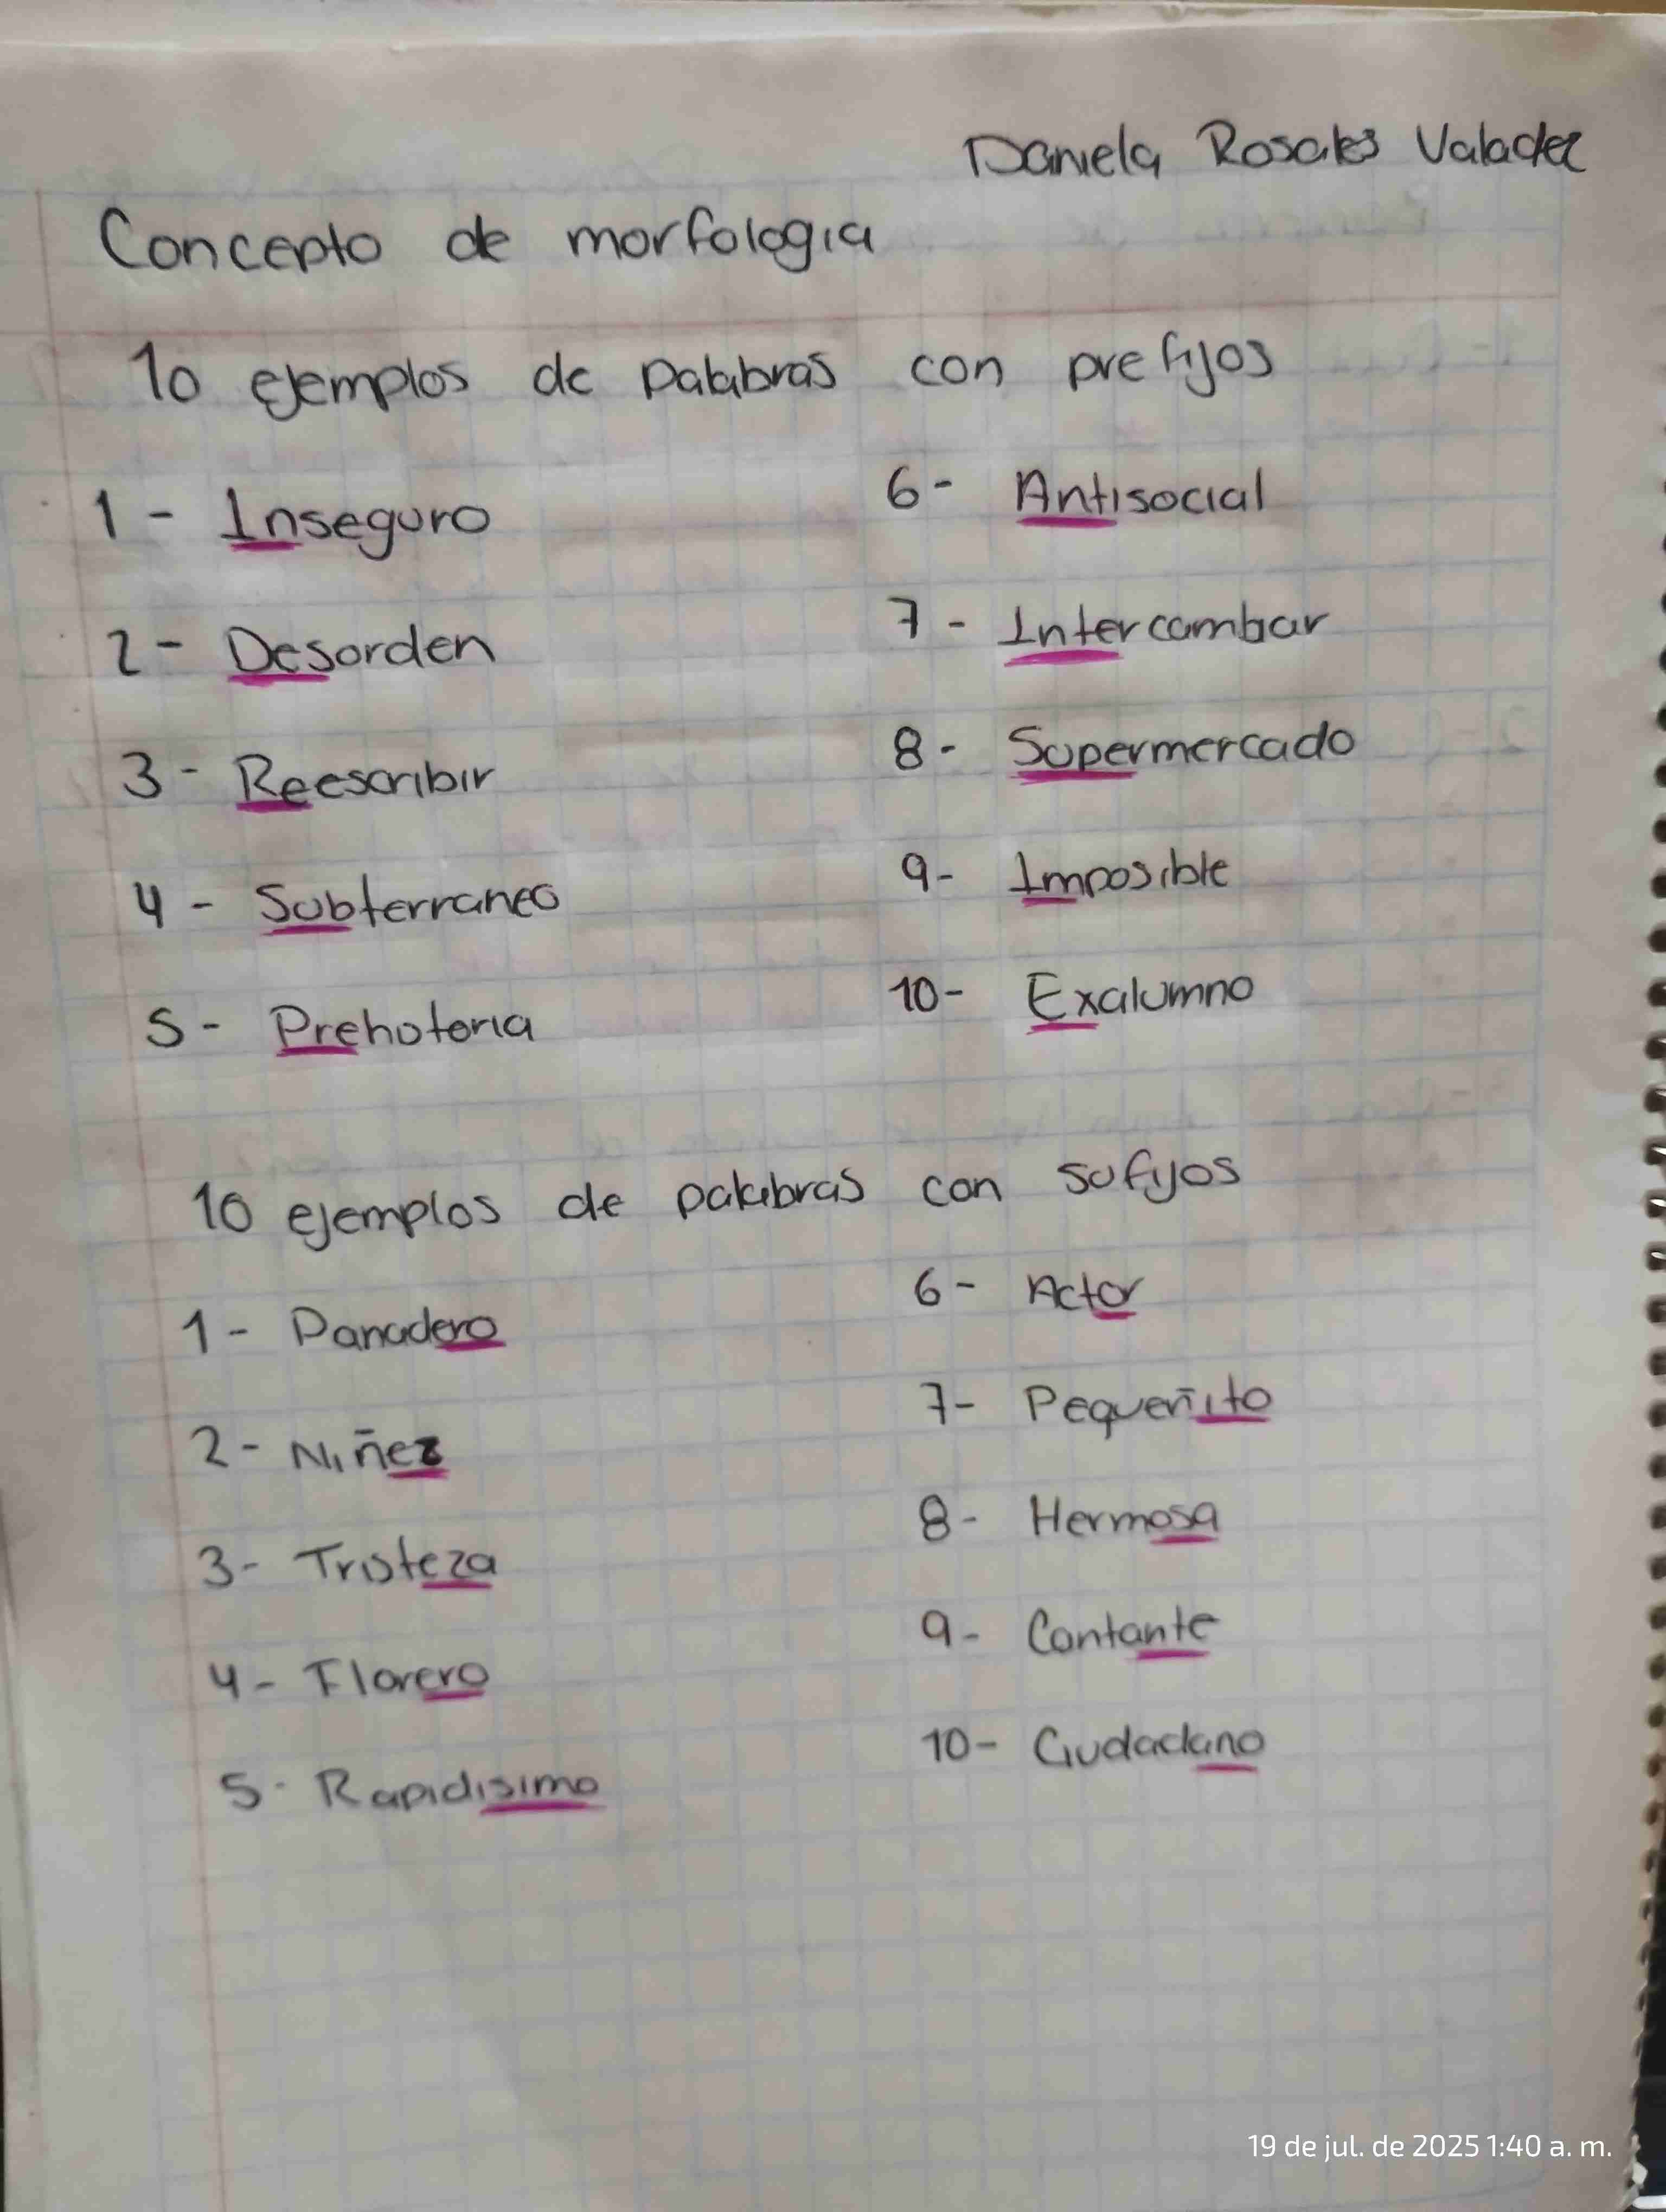 Daniela Rosales Valadez
Concepto de morfologia
10 ejemplos de palabras con prefijos
1 - Inseguro
2 - Desorden
3 - Reescribir
4 - Subterraneo
5 - Prehotoria
6 - Antisocial
7 - Intercambar
8 - Supermercado
9- Imposible
10- Exalumno
10 ejemplos de palabras con sufijos
1 - Panadero
2 - Niñez
3- Tristeza
4- Florero
5- Rapidisimo
6- Actor
7- Pequeñito
8- Hermosa
9- Cantante
10- Ciudadano
19 de jul. de 2025 1:40 a. m.